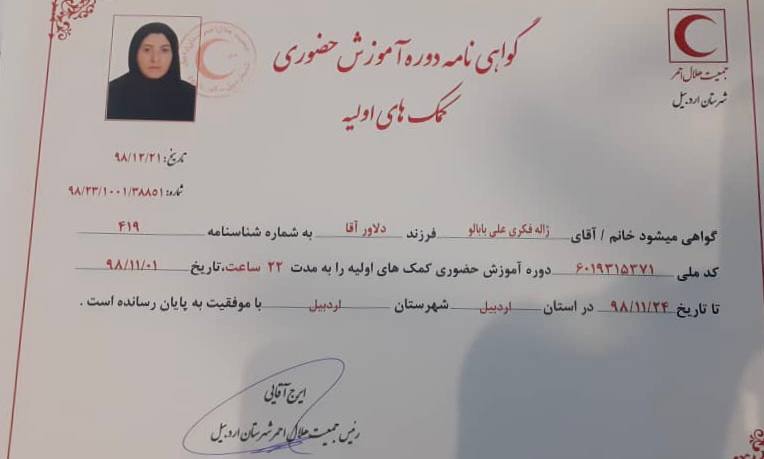 گواهی نامه دوره آموزش حضوری
کمک های اولیه
جمعیت هلال احمر
شهرستان اردبیل
تاریخ: ۹۸/۱۲/۲۱
شماره: ۹۸/۲۳/۱۰۰۱/۳۸۸۵۱
گواهی میشود خانم / آقای ژاله فکری علی بابالو فرزند دلاور آقا به شماره شناسنامه ۴۱۹
کد ملی ۶۰۱۹۳۱۵۳۷۱ دوره آموزش حضوری کمک های اولیه را به مدت ۲۲ ساعت،تاریخ ۹۸/۱۱/۰۱
تا تاریخ ۹۸/۱۱/۲۴ در استان اردبیل شهرستان اردبیل با موفقیت به پایان رسانده است .
ایرج آقایی
رئیس جمعیت هلال احمر شهرستان اردبیل